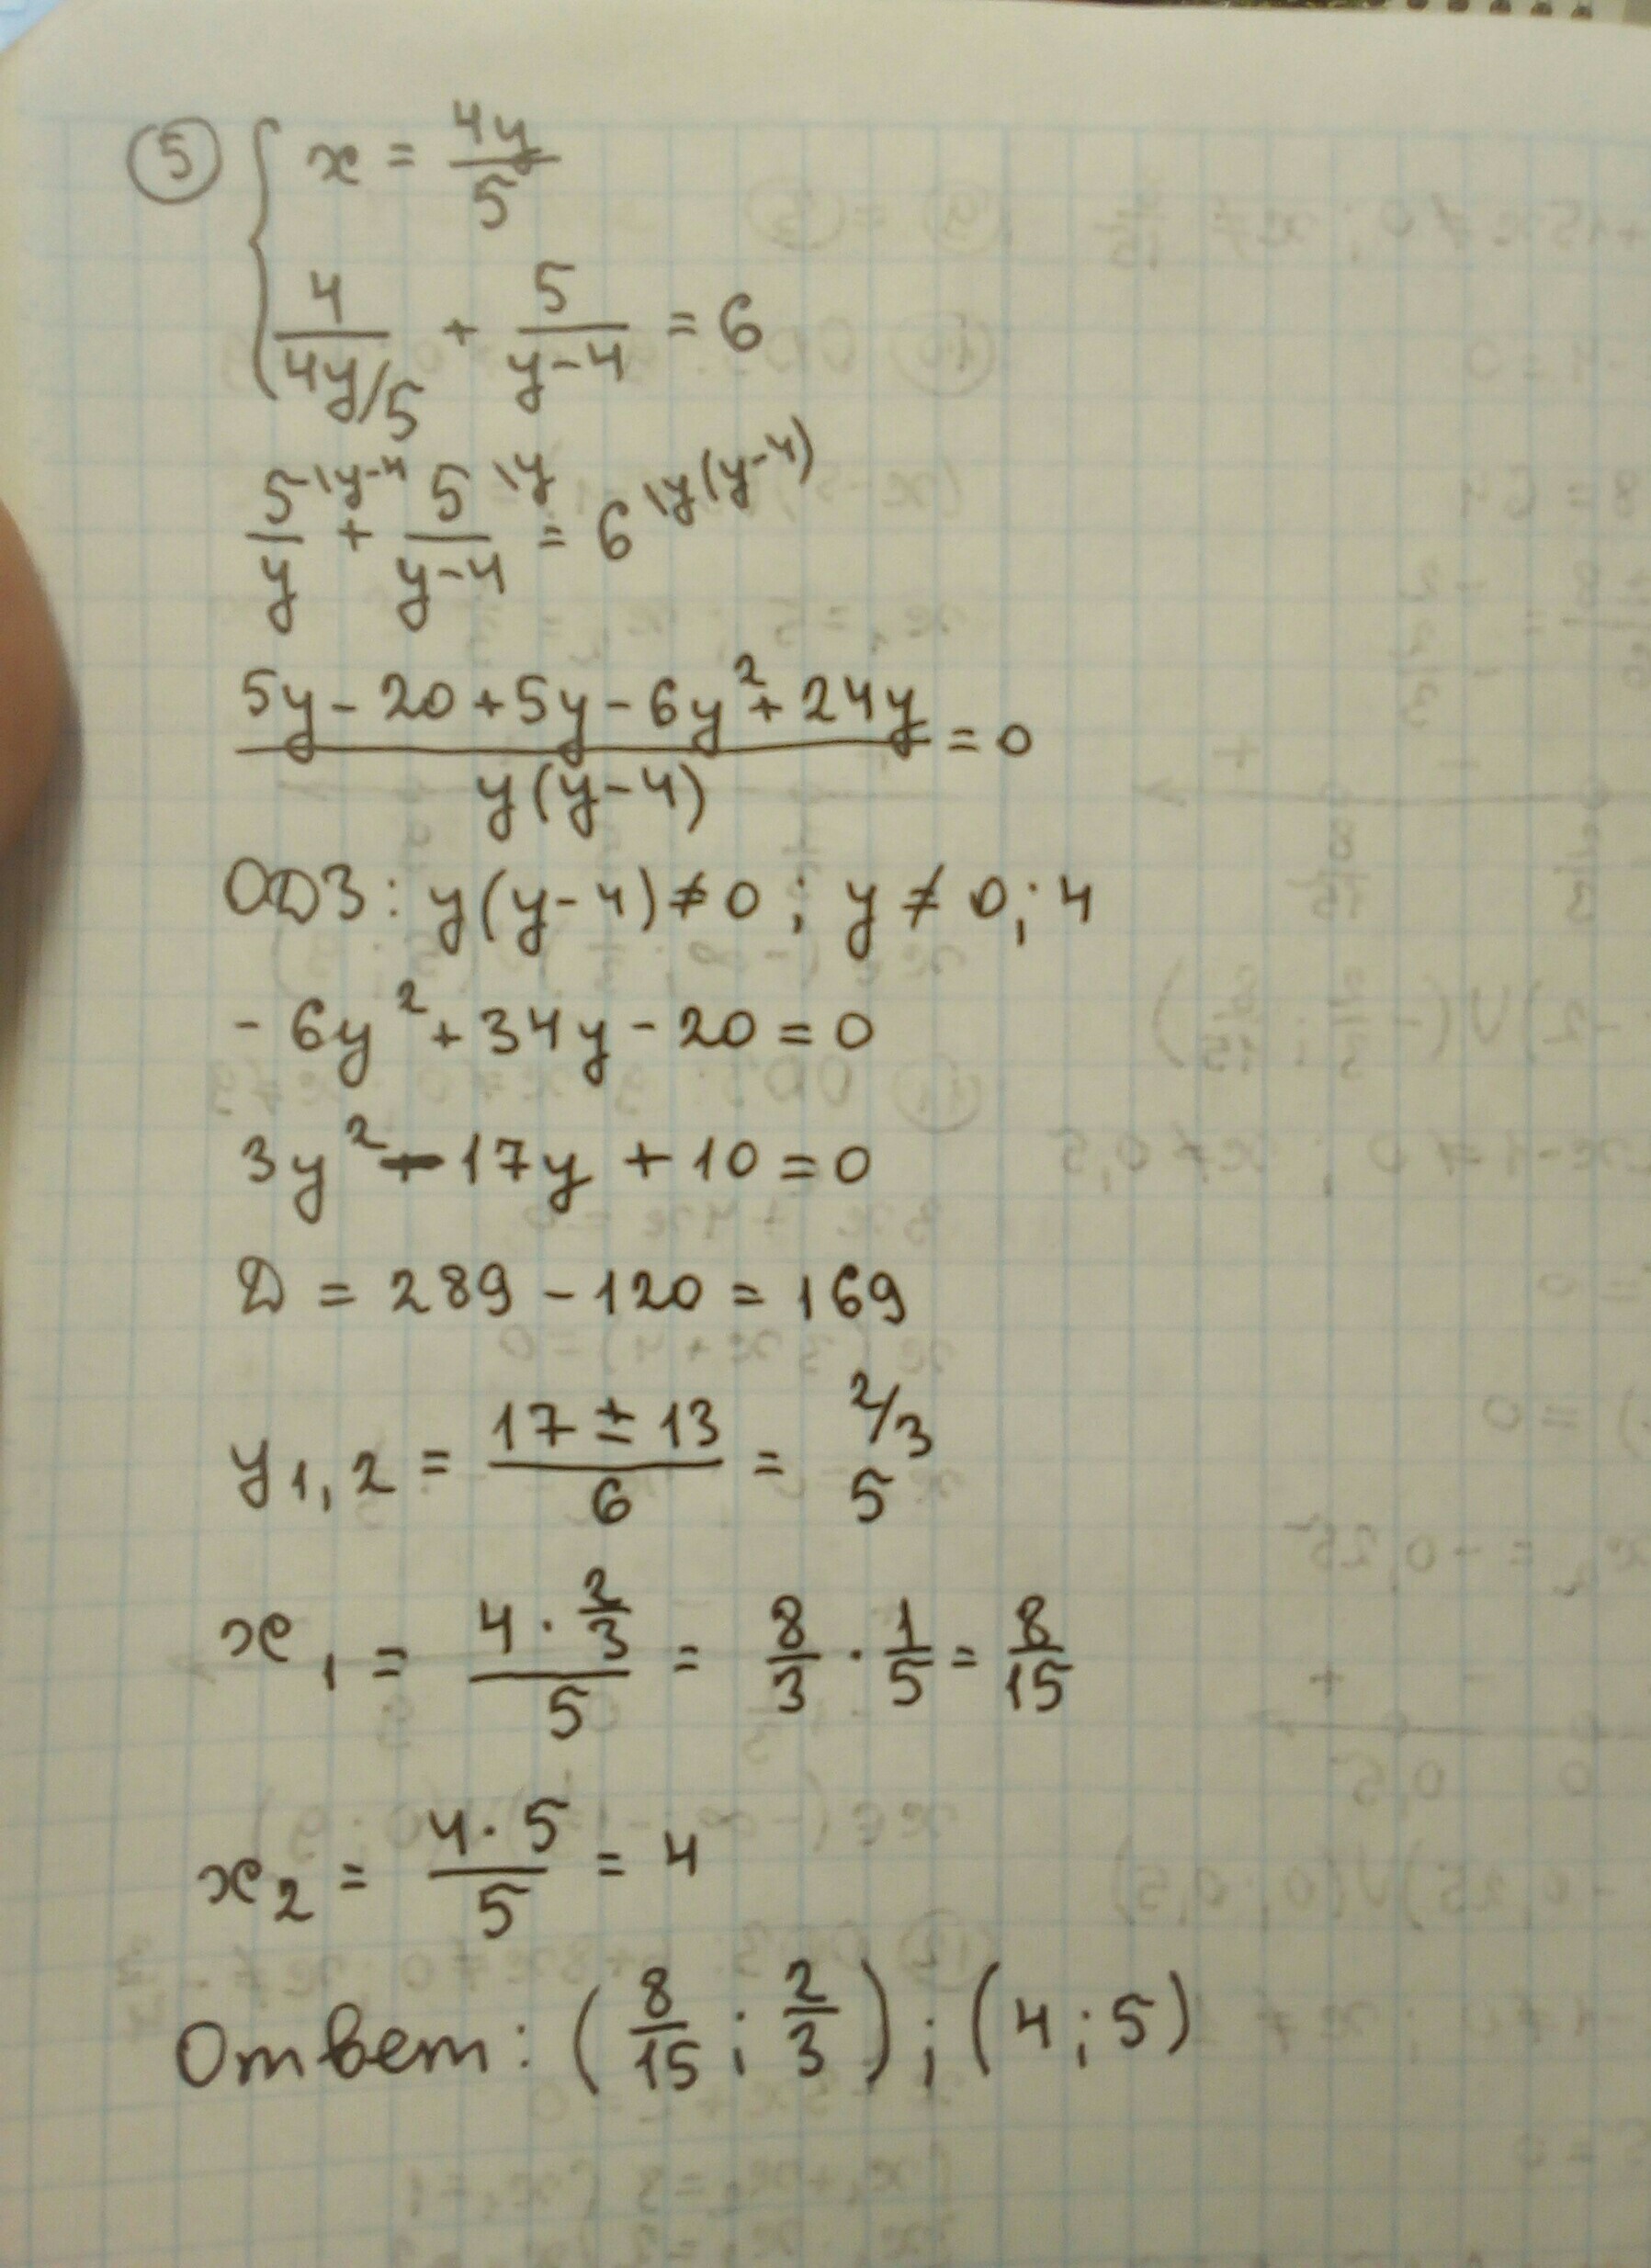 5 { x = 4y/5
4/(4y/5) + 5/(y-4) = 6
5/y \y-4 + 5/(y-4) \y = 6 \y(y-4)
(5y - 20 + 5y - 6y² + 24y)/(y(y-4)) = 0
ОДЗ: y(y-4) ≠ 0; y ≠ 0; 4
-6y² + 34y - 20 = 0
3y² - 17y + 10 = 0
D = 289 - 120 = 169
y1,2 = (17 ± 13)/6 = 2/3
5
x1 = (4 · 2/3)/5 = 8/3 · 1/5 = 8/15
x2 = (4 · 5)/5 = 4
Ответ: (8/15; 2/3); (4; 5)